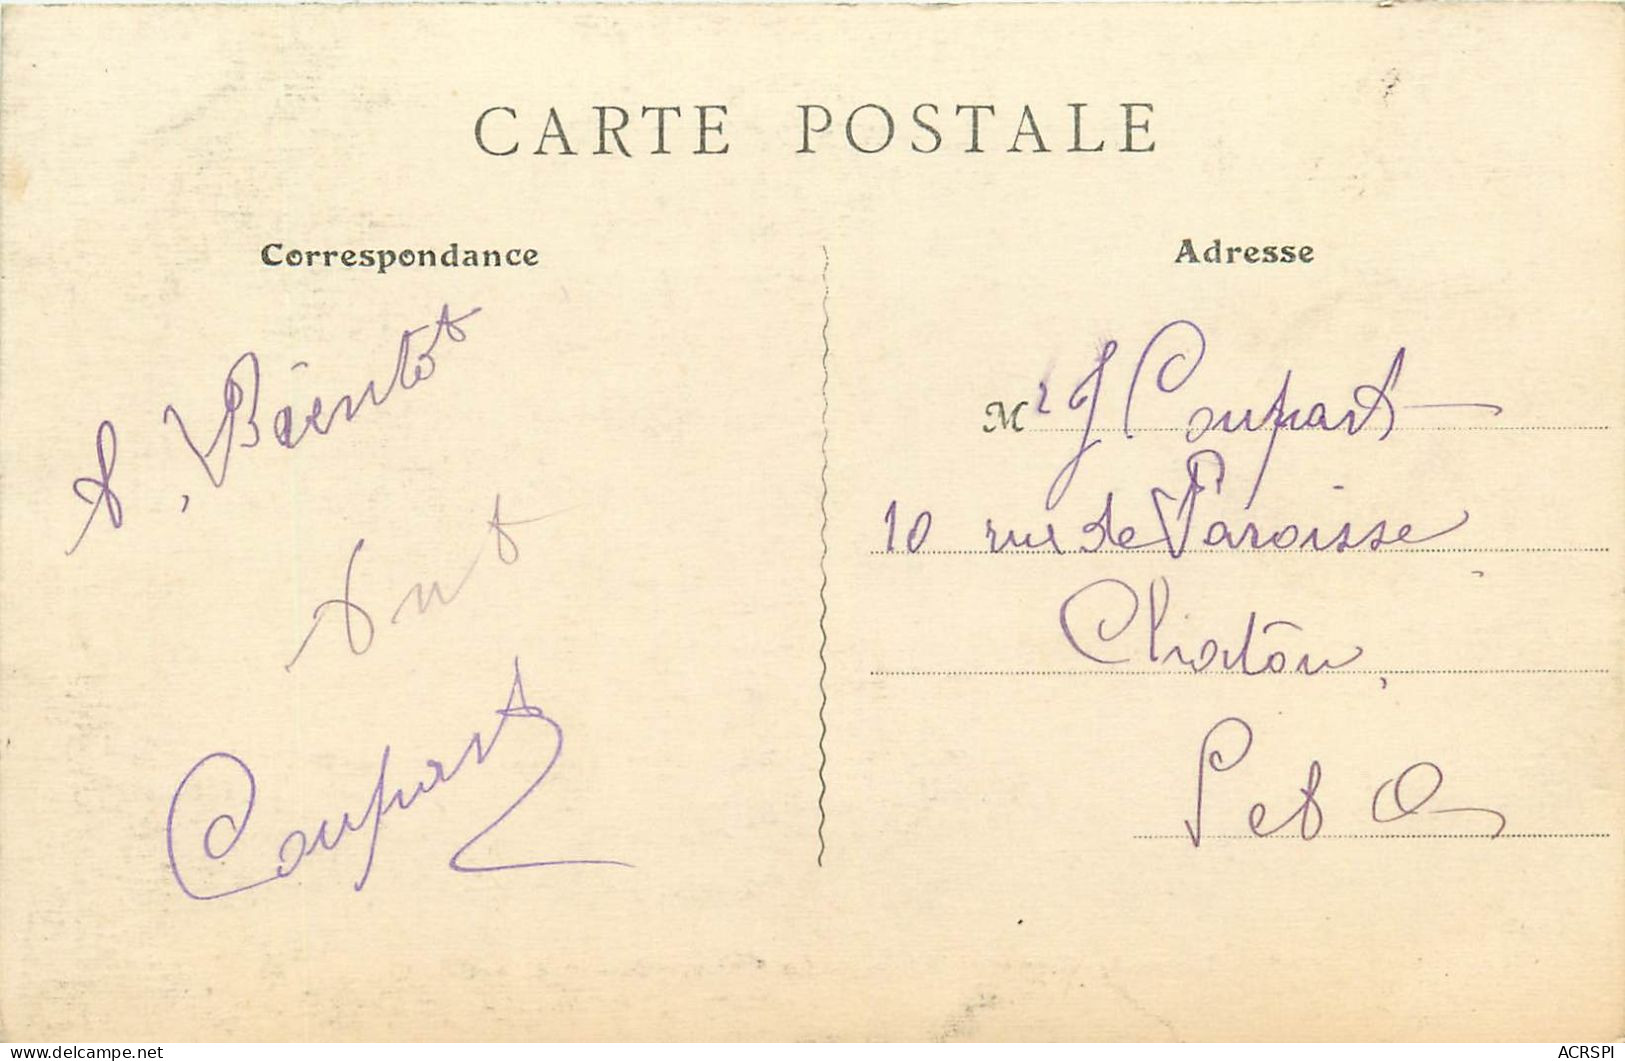 CARTE POSTALE
Correspondance
Adresse
A, Bientot
Ant
Coupart
Mr J Coupart
10 rue de Paroisse
Chatou,
S et O
delcampe.net
ACRSPI